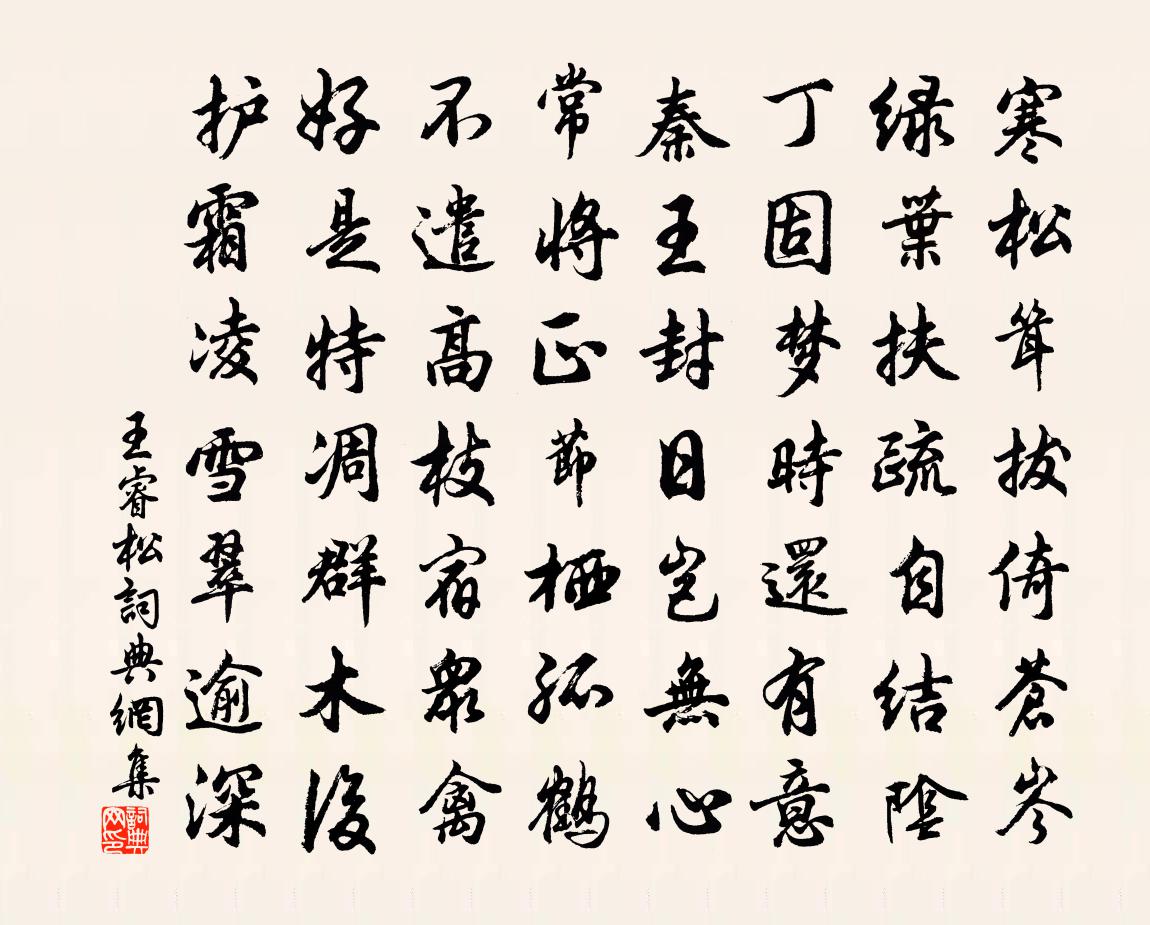 寒松耸拔倚蒼岑
绿葉扶疏自结陰
丁固梦時還有意
秦王封日岂無心
常將正節栖孤鶴
不遣高枝宿衆禽
好是特凋群木後
护霜凌雪翠逾深
王睿松詞典網集
詞典网印